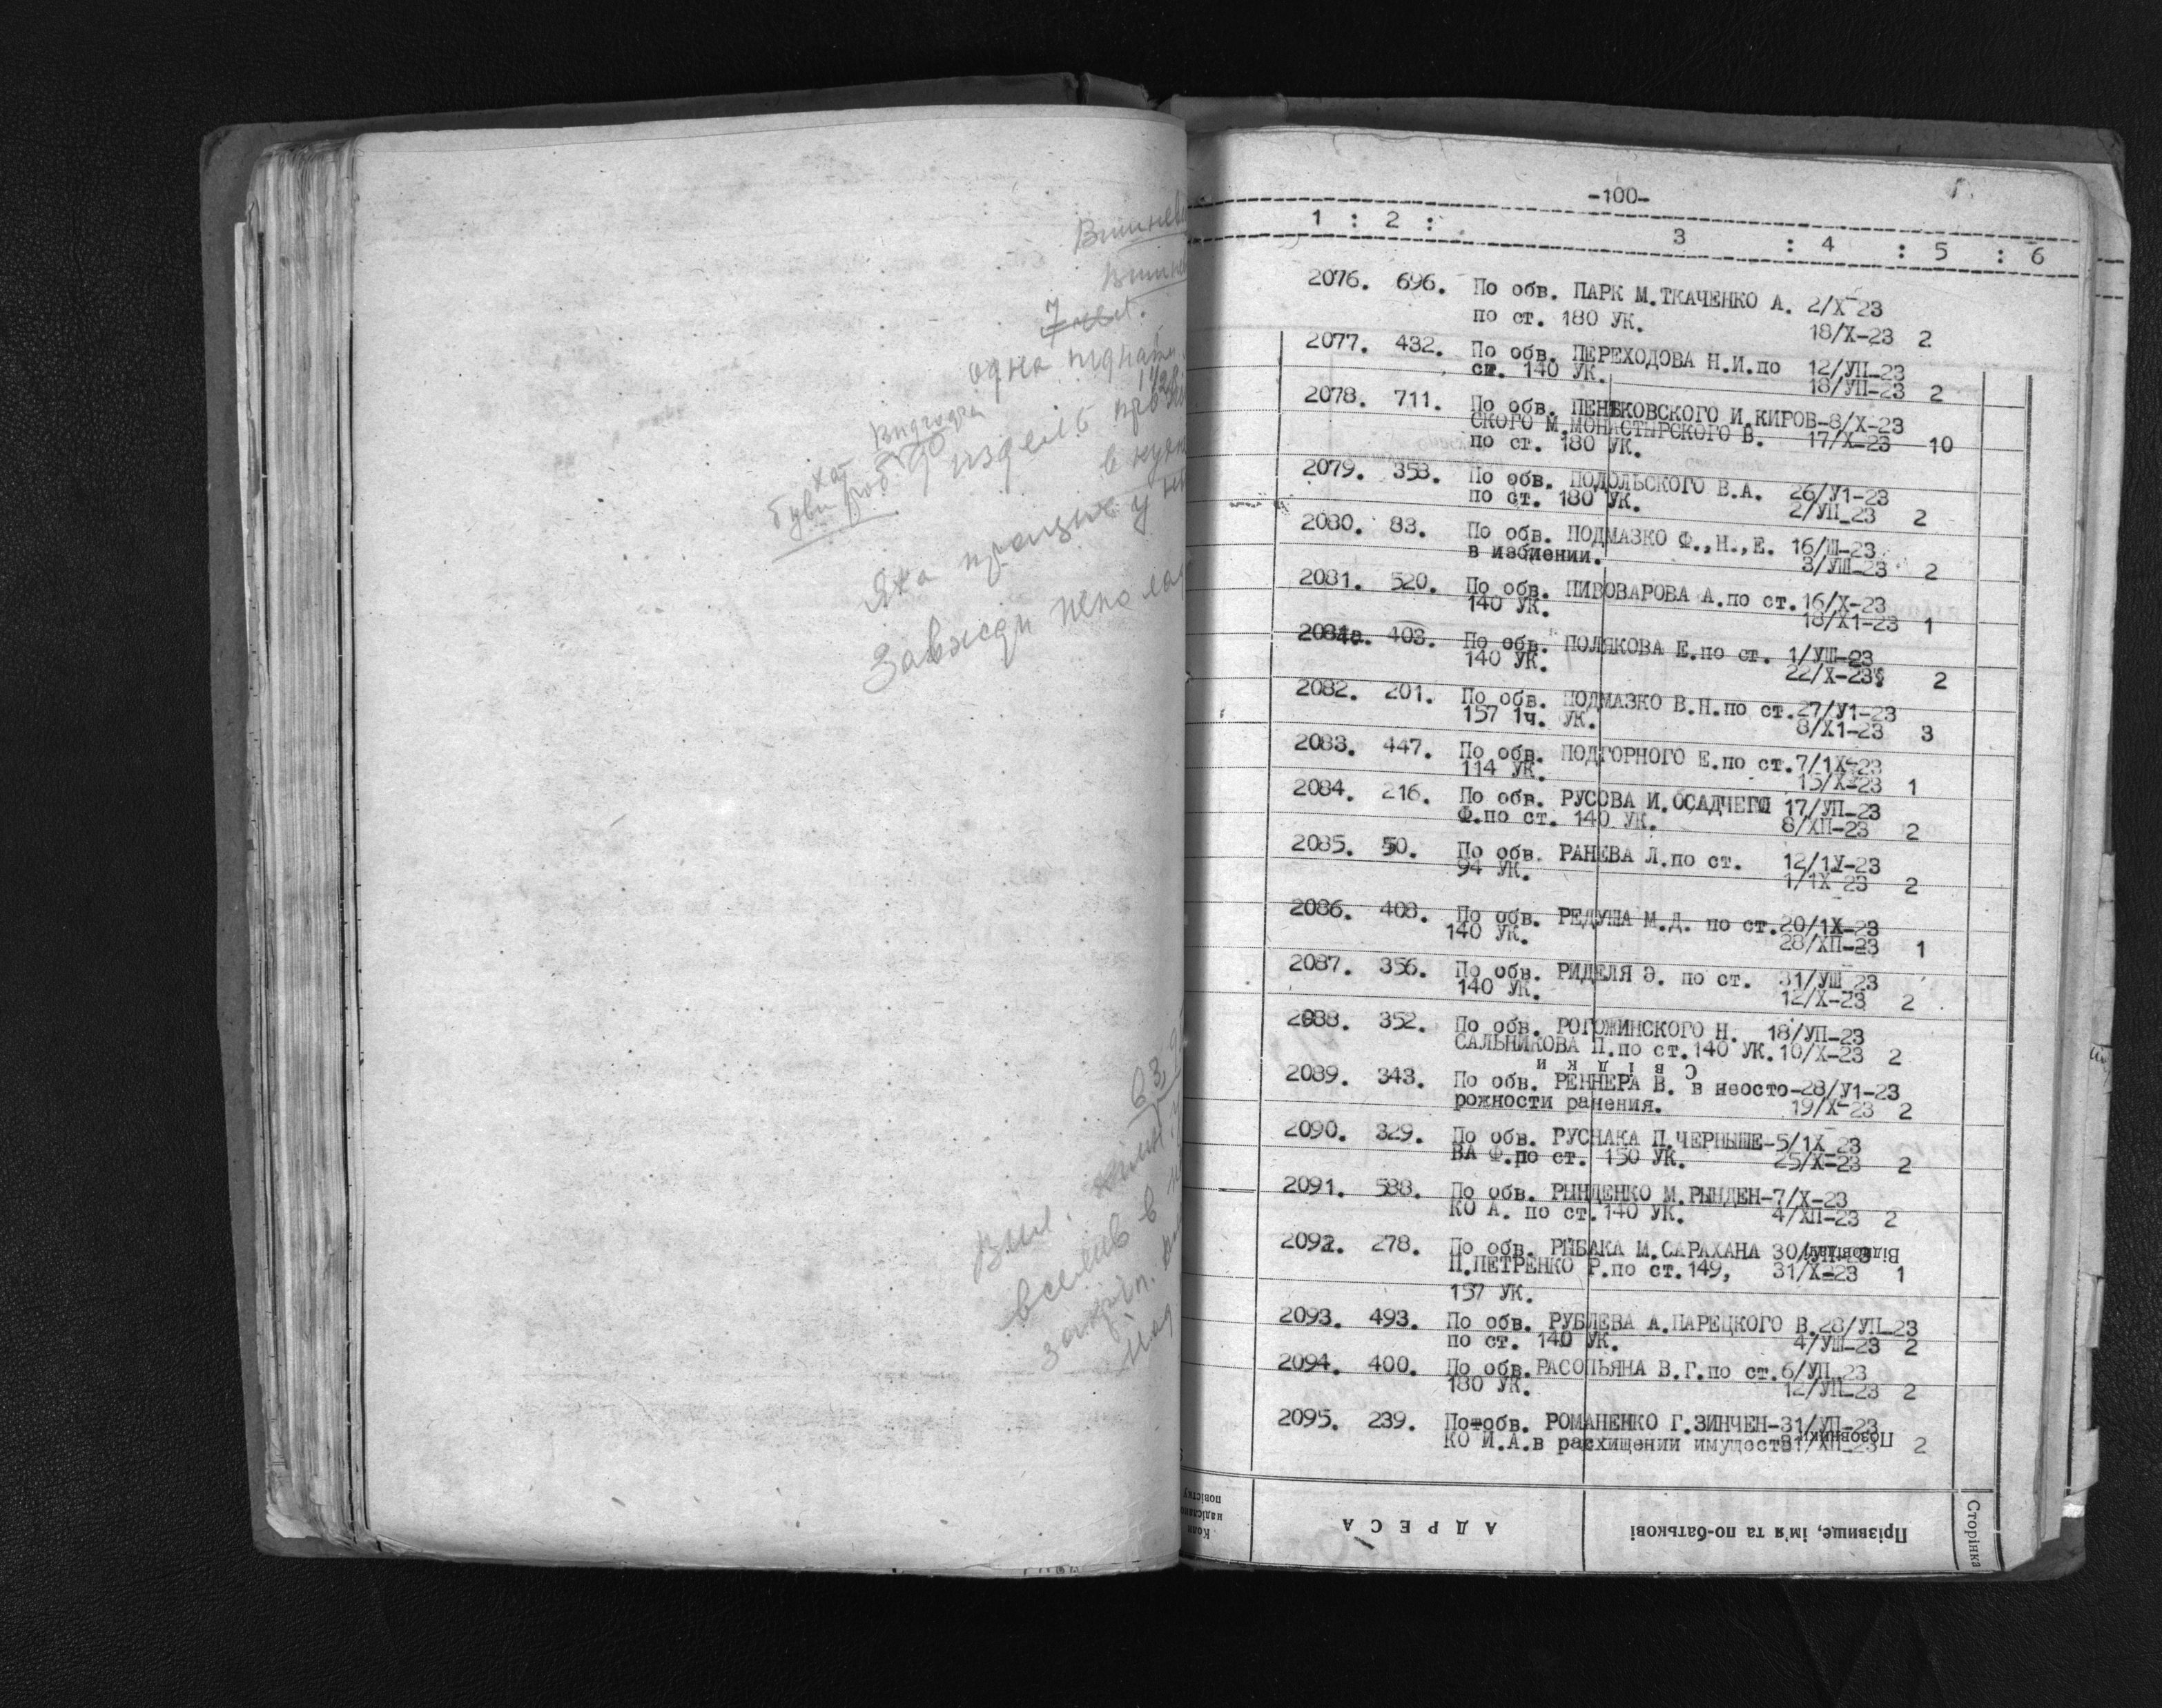 7 чел.
одна
Завжди
-100-
1 : 2 : 3 : 4 : 5 : 6
2076. 696. По обв. ПАРК М.ТКАЧЕНКО А. 2/Х-23
по ст. 180 УК. 18/Х-23 2
2077. 432. По обв. ПЕРЕХОДОВА Н.И.по 12/УП-23
ст. 140 УК. 18/УП-23 2
2078. 711. По обв. ПЕНЬКОВСКОГО И.КИРОВ-8/Х-23
СКОГО М.МОНАСТЫРСКОГО В. 17/Х-23 10
по ст. 180 УК.
2079. 358. По обв. ПОДОЛЬСКОГО В.А. 26/У1-23
по ст. 180 УК. 2/УП-23 2
2080. 83. По обв. ПОДМАЗКО Ф.,Н.,Е. 16/Ш-23
в избиении. 3/УШ-23 2
2081. 520. По обв. ПИВОВАРОВА А.по ст.16/Х-23
140 УК. 18/Х1-23 1
2081а. 403. По обв. ПОЛЯКОВА Е.по ст. 1/УШ-23
140 УК. 22/Х-23 2
2082. 201. По обв. ПОДМАЗКО В.Н.по ст.27/У1-23
157 1ч. УК. 8/Х1-23 3
2083. 447. По обв. ПОДГОРНОГО Е.по ст.7/1Х-23
114 УК. 15/Х-23 1
2084. 216. По обв. РУСОВА И.ОСАДЧЕГО 17/УП-23
Ф.по ст. 140 УК. 8/ХП-23 2
2085. 50. По обв. РАНЕВА Л.по ст. 12/1У-23
94 УК. 1/1Х-23 2
2086. 408. По обв. РЕДУША М.Д. по ст.20/1Х-23
140 УК. 28/ХП-23 1
2087. 356. По обв. РИДЕЛЯ Э. по ст. 31/УШ-23
140 УК. 12/Х-23 2
2088. 352. По обв. РОГОЖИНСКОГО Н. 18/УП-23
САЛЬНИКОВА П.по ст.140 УК.10/Х-23 2
Свідки
2089. 343. По обв. РЕННЕРА В. в неосто-28/У1-23
рожности ранения. 19/Х-23 2
2090. 329. По обв. РУСНАКА П.ЧЕРНЫШЕ-5/1Х-23
ВА Ф.по ст. 150 УК. 25/Х-23 2
2091. 588. По обв. РЫНДЕНКО М.РЫНДЕН-7/Х-23
КО А. по ст.140 УК. 4/ХП-23 2
2092. 278. По обв. РЫБАКА М.САРАХАНА 30/УП-23
П.ПЕТРЕНКО Р.по ст.149, 31/Х-23 1
157 УК.
2093. 493. По обв. РУБЛЕВА А.ПАРЕЦКОГО В.28/УП-23
по ст. 140 УК. 4/УШ-23 2
2094. 400. По обв.РАСОПЬЯНА В.Г.по ст.6/УП-23
180 УК. 12/УП-23 2
2095. 239. По обв. РОМАНЕНКО Г.ЗИНЧЕН-31/УП-23
КО И.А.в расхищении имущеста 31/ХП-23 2
Позовники
Коли надіслано повістку
АДРЕСА
Прізвище, ім'я та по-батькові
Сторінка